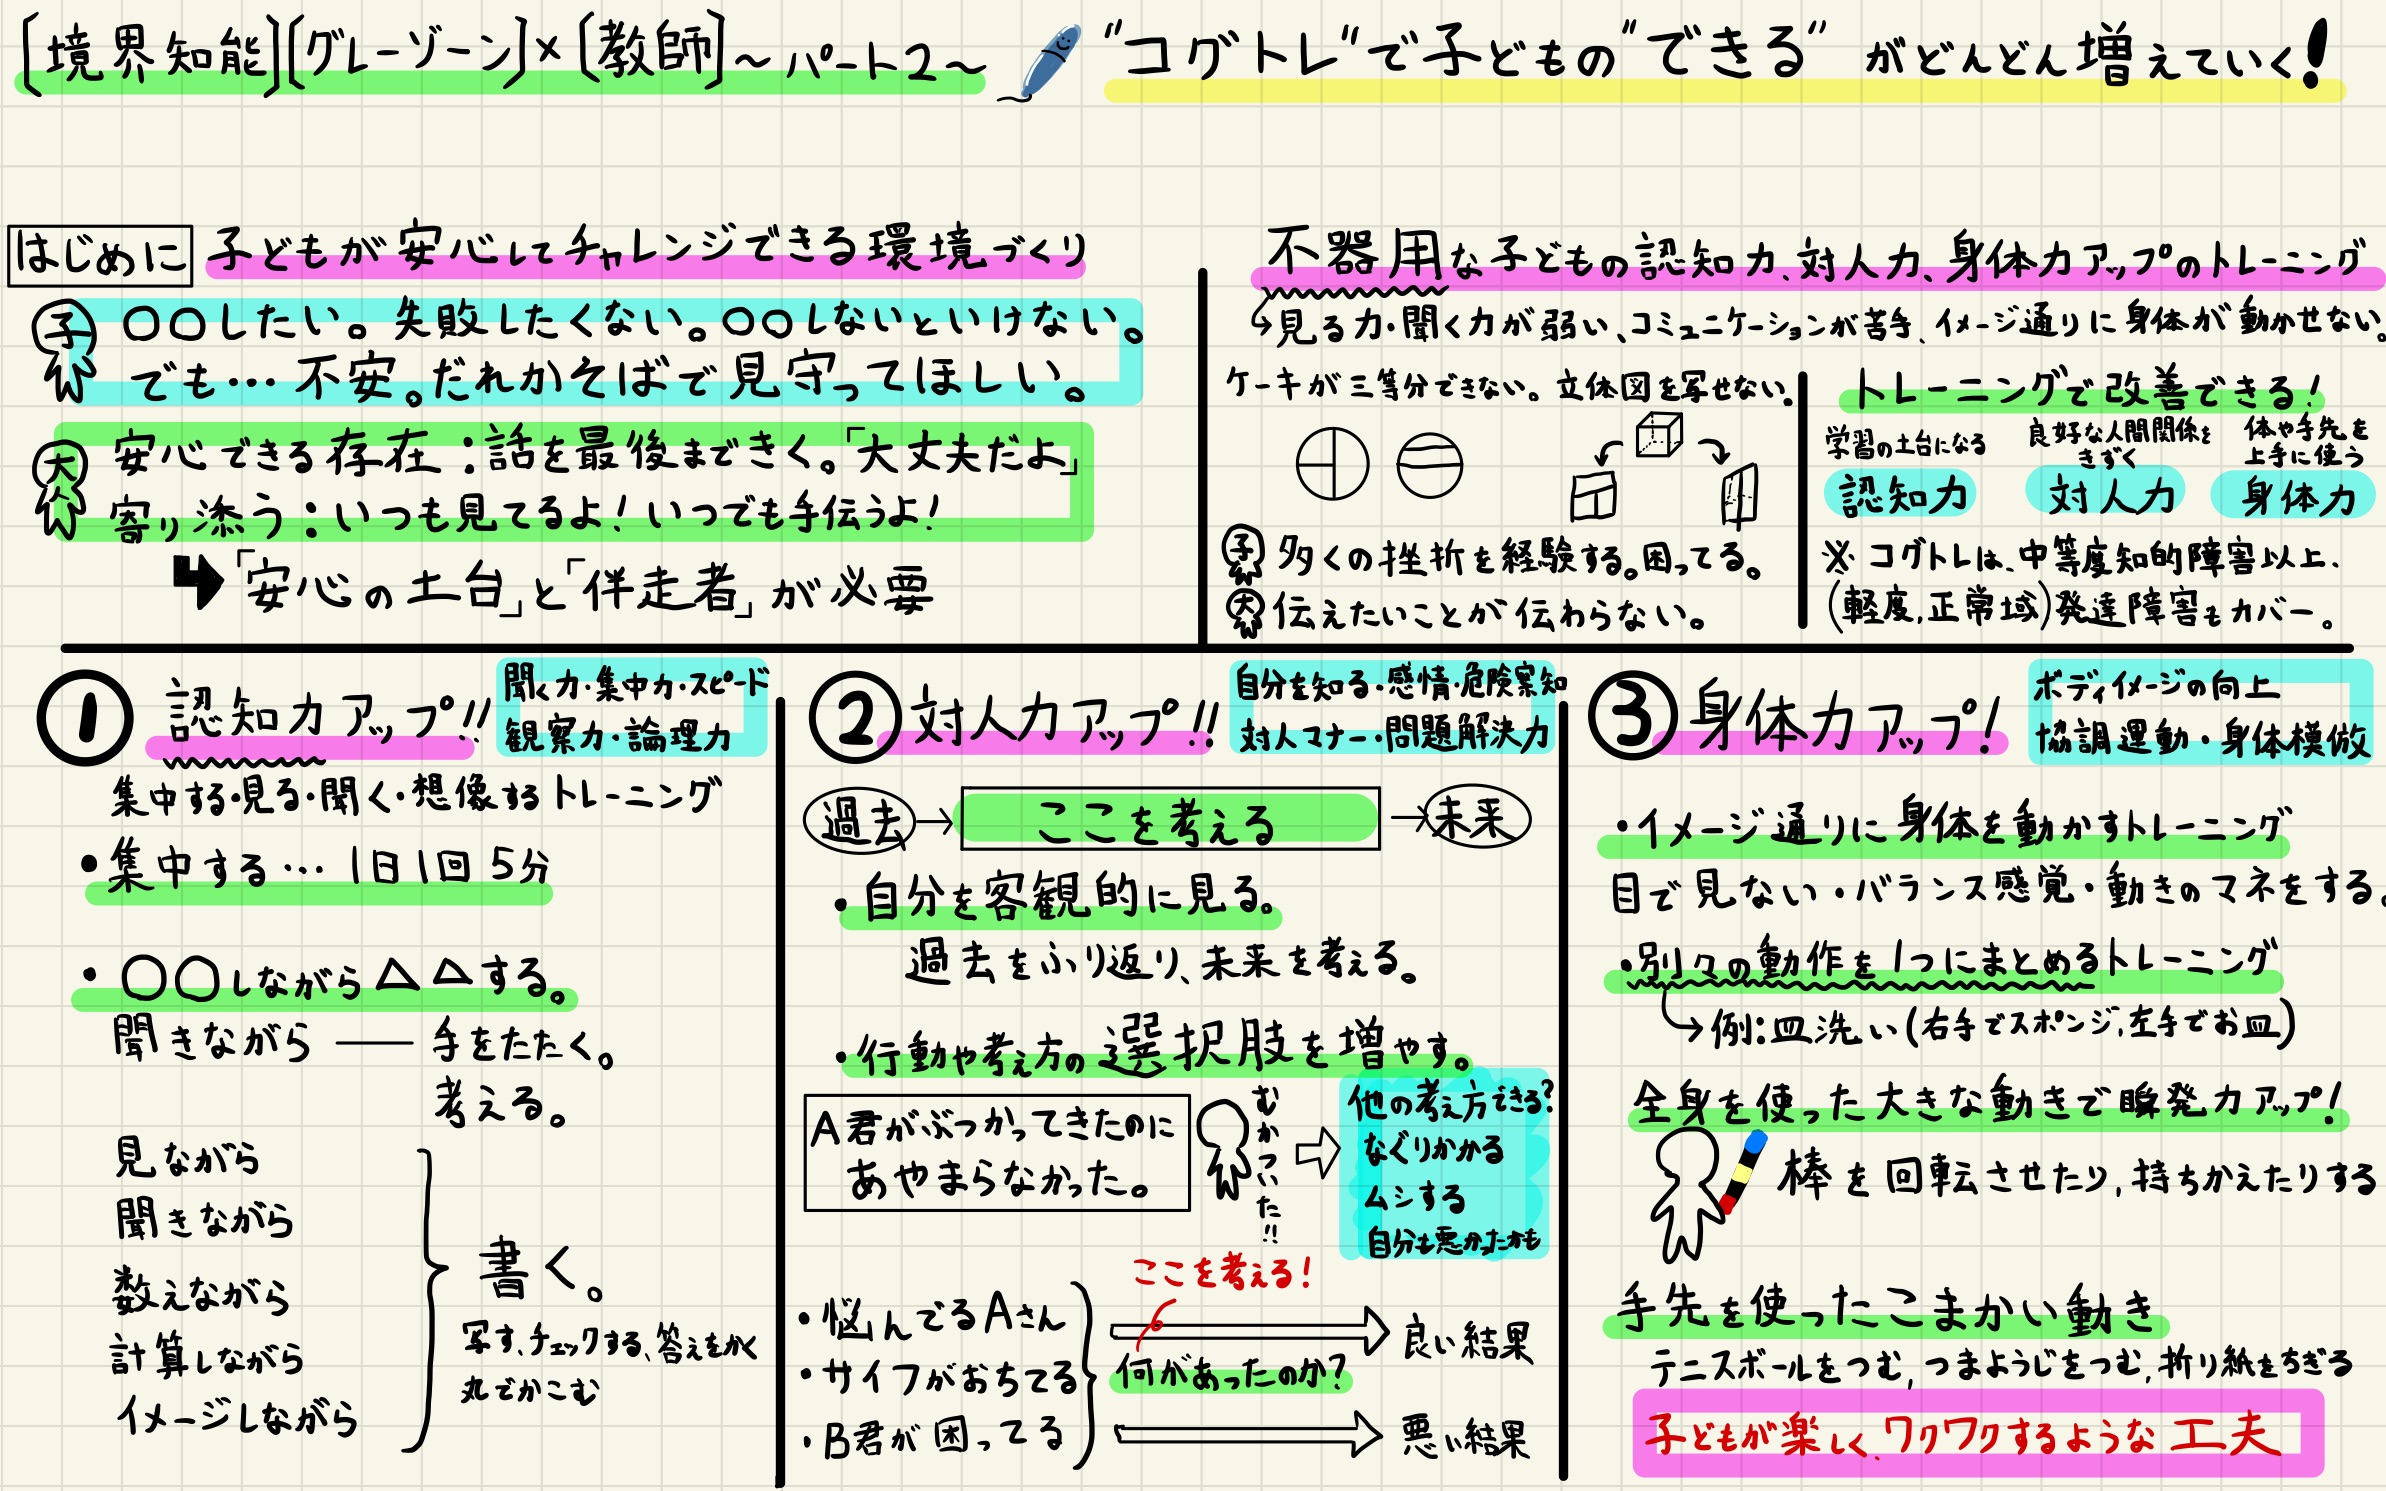 [境界知能][グレーゾーン]×[教師]～パート2～
"コグトレ"で子どもの"できる"がどんどん増えていく!
はじめに 子どもが安心してチャレンジできる環境づくり
子 〇〇したい。失敗したくない。〇〇しないといけない。
でも…不安。だれかそばで見守ってほしい。
大人 安心できる存在:話を最後まできく。「大丈夫だよ」
寄り添う:いつも見てるよ!いつでも手伝うよ!
「安心の土台」と「伴走者」が必要
不器用な子どもの認知力、対人力、身体力アップのトレーニング
→見る力・聞く力が弱い、コミュニケーションが苦手、イメージ通りに身体が動かせない。
ケーキが三等分できない。立体図を写せない。
子 多くの挫折を経験する。困ってる。
大人 伝えたいことが伝わらない。
トレーニングで改善できる!
学習の土台になる
認知力
良好な人間関係を
きずく
対人力
体や手先を
上手に使う
身体力
※コグトレは、中等度知的障害以上、
(軽度,正常域)発達障害もカバー。
① 認知力アップ!!
聞く力・集中力・スピード
観察力・論理力
集中する・見る・聞く・想像するトレーニング
・集中する…1日1回5分
・〇〇しながら△△する。
聞きながら ― 手をたたく。
考える。
見ながら
聞きながら
数えながら
計算しながら
イメージしながら
書く。
写す、チェックする、答えをかく
丸でかこむ
② 対人力アップ!!
自分を知る・感情・危険察知
対人マナー・問題解決力
過去→ここを考える→未来
・自分を客観的に見る。
過去をふり返り、未来を考える。
・行動や考え方の選択肢を増やす。
A君がぶつかってきたのに
あやまらなかった。
むかついた!!
他の考え方できる?
なぐりかかる
ムシする
自分も悪かったかも
ここを考える!
・悩んでるAさん
・サイフがおちてる
・B君が困ってる
何があったのか?
良い結果
悪い結果
③ 身体力アップ!
ボディイメージの向上
協調運動・身体模倣
・イメージ通りに身体を動かすトレーニング
目で見ない・バランス感覚・動きのマネをする。
・別々の動作を1つにまとめるトレーニング
→例:皿洗い(右手でスポンジ,左手でお皿)
全身を使った大きな動きで瞬発力アップ!
棒を回転させたり,持ちかえたりする
手先を使ったこまかい動き
テニスボールをつむ,つまようじをつむ,折り紙をちぎる
子どもが楽しく、ワクワクするような工夫